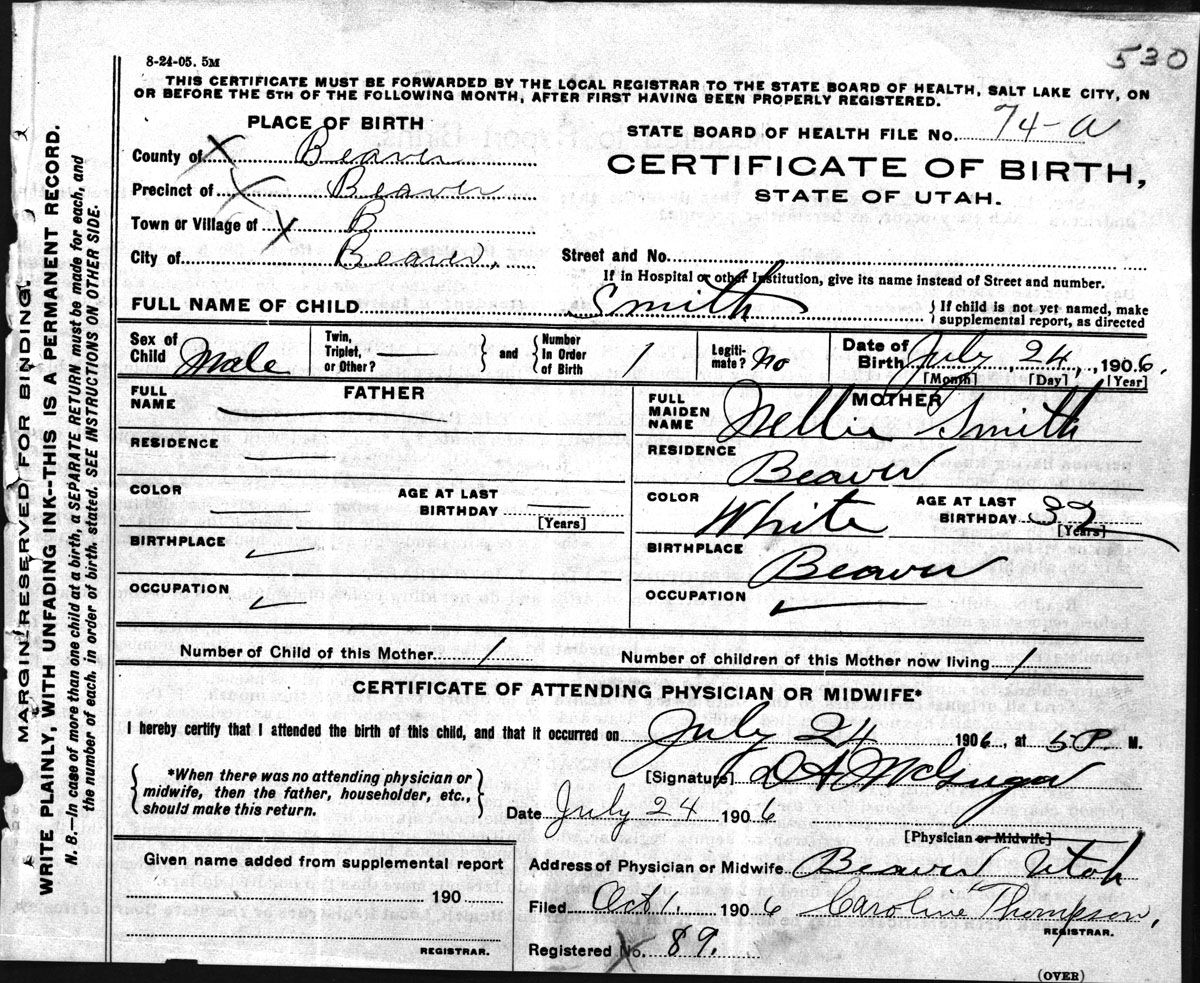 530
8-24-05. 5M
THIS CERTIFICATE MUST BE FORWARDED BY THE LOCAL REGISTRAR TO THE STATE BOARD OF HEALTH, SALT LAKE CITY, ON
OR BEFORE THE 5TH OF THE FOLLOWING MONTH, AFTER FIRST HAVING BEEN PROPERLY REGISTERED.
PLACE OF BIRTH
STATE BOARD OF HEALTH FILE No. 74-a
County of X Beaver
CERTIFICATE OF BIRTH,
Precinct of X Beaver
STATE OF UTAH.
Town or Village of X B
City of Beaver.
Street and No.
If in Hospital or other Institution, give its name instead of Street and number.
FULL NAME OF CHILD Smith
{ If child is not yet named, make
supplemental report, as directed
Sex of Child Male
Twin, Triplet, or Other? } and { Number In Order of Birth 1
Legitimate? No
Date of Birth July 24, 1906.
[Month] [Day] [Year]
FATHER
FULL NAME
RESIDENCE
COLOR
AGE AT LAST BIRTHDAY
[Years]
BIRTHPLACE
OCCUPATION
MOTHER
FULL MAIDEN NAME Nellie Smith
RESIDENCE Beaver
COLOR White
AGE AT LAST BIRTHDAY 32
[Years]
BIRTHPLACE Beaver
OCCUPATION
Number of Child of this Mother 1
Number of children of this Mother now living 1
CERTIFICATE OF ATTENDING PHYSICIAN OR MIDWIFE*
I hereby certify that I attended the birth of this child, and that it occurred on July 24 1906, at 5 P. M.
{ *When there was no attending physician or
midwife, then the father, householder, etc.,
should make this return. }
[Signature]
Date July 24 1906
[Physician or Midwife]
Given name added from supplemental report
190
REGISTRAR.
Address of Physician or Midwife Beaver Utah
Filed Oct 1. 1906 Caroline Thompson,
REGISTRAR.
Registered No. 89.
(OVER)
MARGIN RESERVED FOR BINDING.
WRITE PLAINLY, WITH UNFADING INK--THIS IS A PERMANENT RECORD.
N. B.—In case of more than one child at a birth, a SEPARATE RETURN must be made for each, and
the number of each, in order of birth, stated. SEE INSTRUCTIONS ON OTHER SIDE.